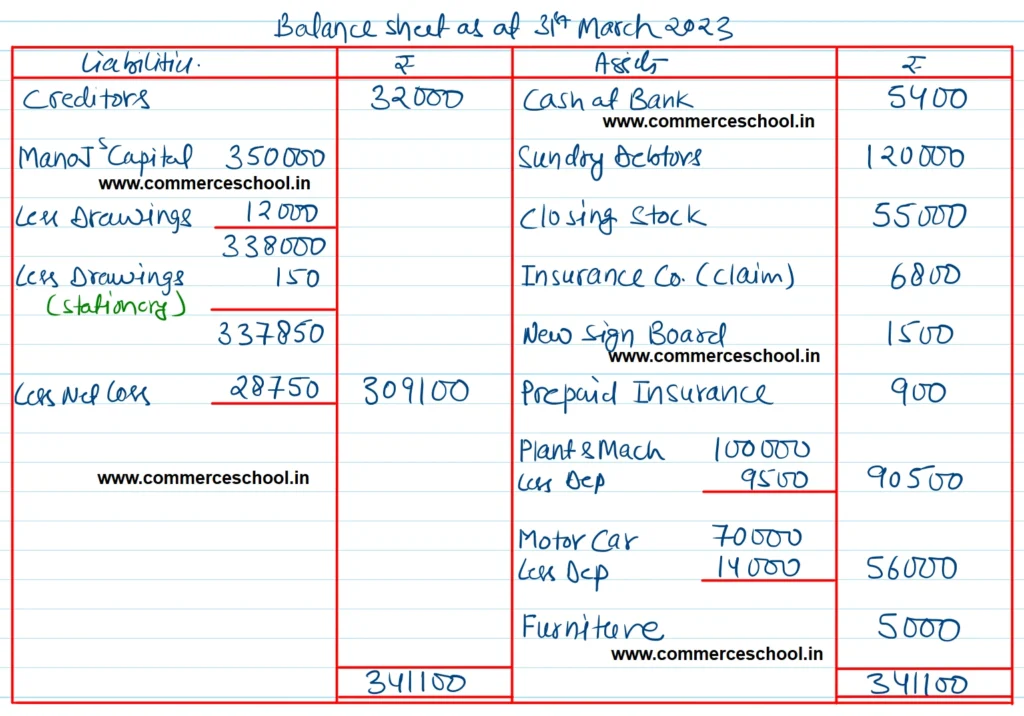 Balance sheet as at 31st March 2023
Liabilities. ₹ Assets ₹
Creditors 32000 Cash at Bank 5400
www.commerceschool.in
Manoj's Capital 350000 Sundry Debtors 120000
www.commerceschool.in
Less Drawings 12000 Closing Stock 55000
338000
Less Drawings 150 Insurance Co. (claim) 6800
(stationery)
337850 New Sign Board 1500
www.commerceschool.in
Less Net Loss 28750 309100 Prepaid Insurance 900
Plant & Mach 100000
www.commerceschool.in Less Dep 9500 90500
Motor Car 70000
Less Dep 14000 56000
Furniture 5000
www.commerceschool.in
341100 341100